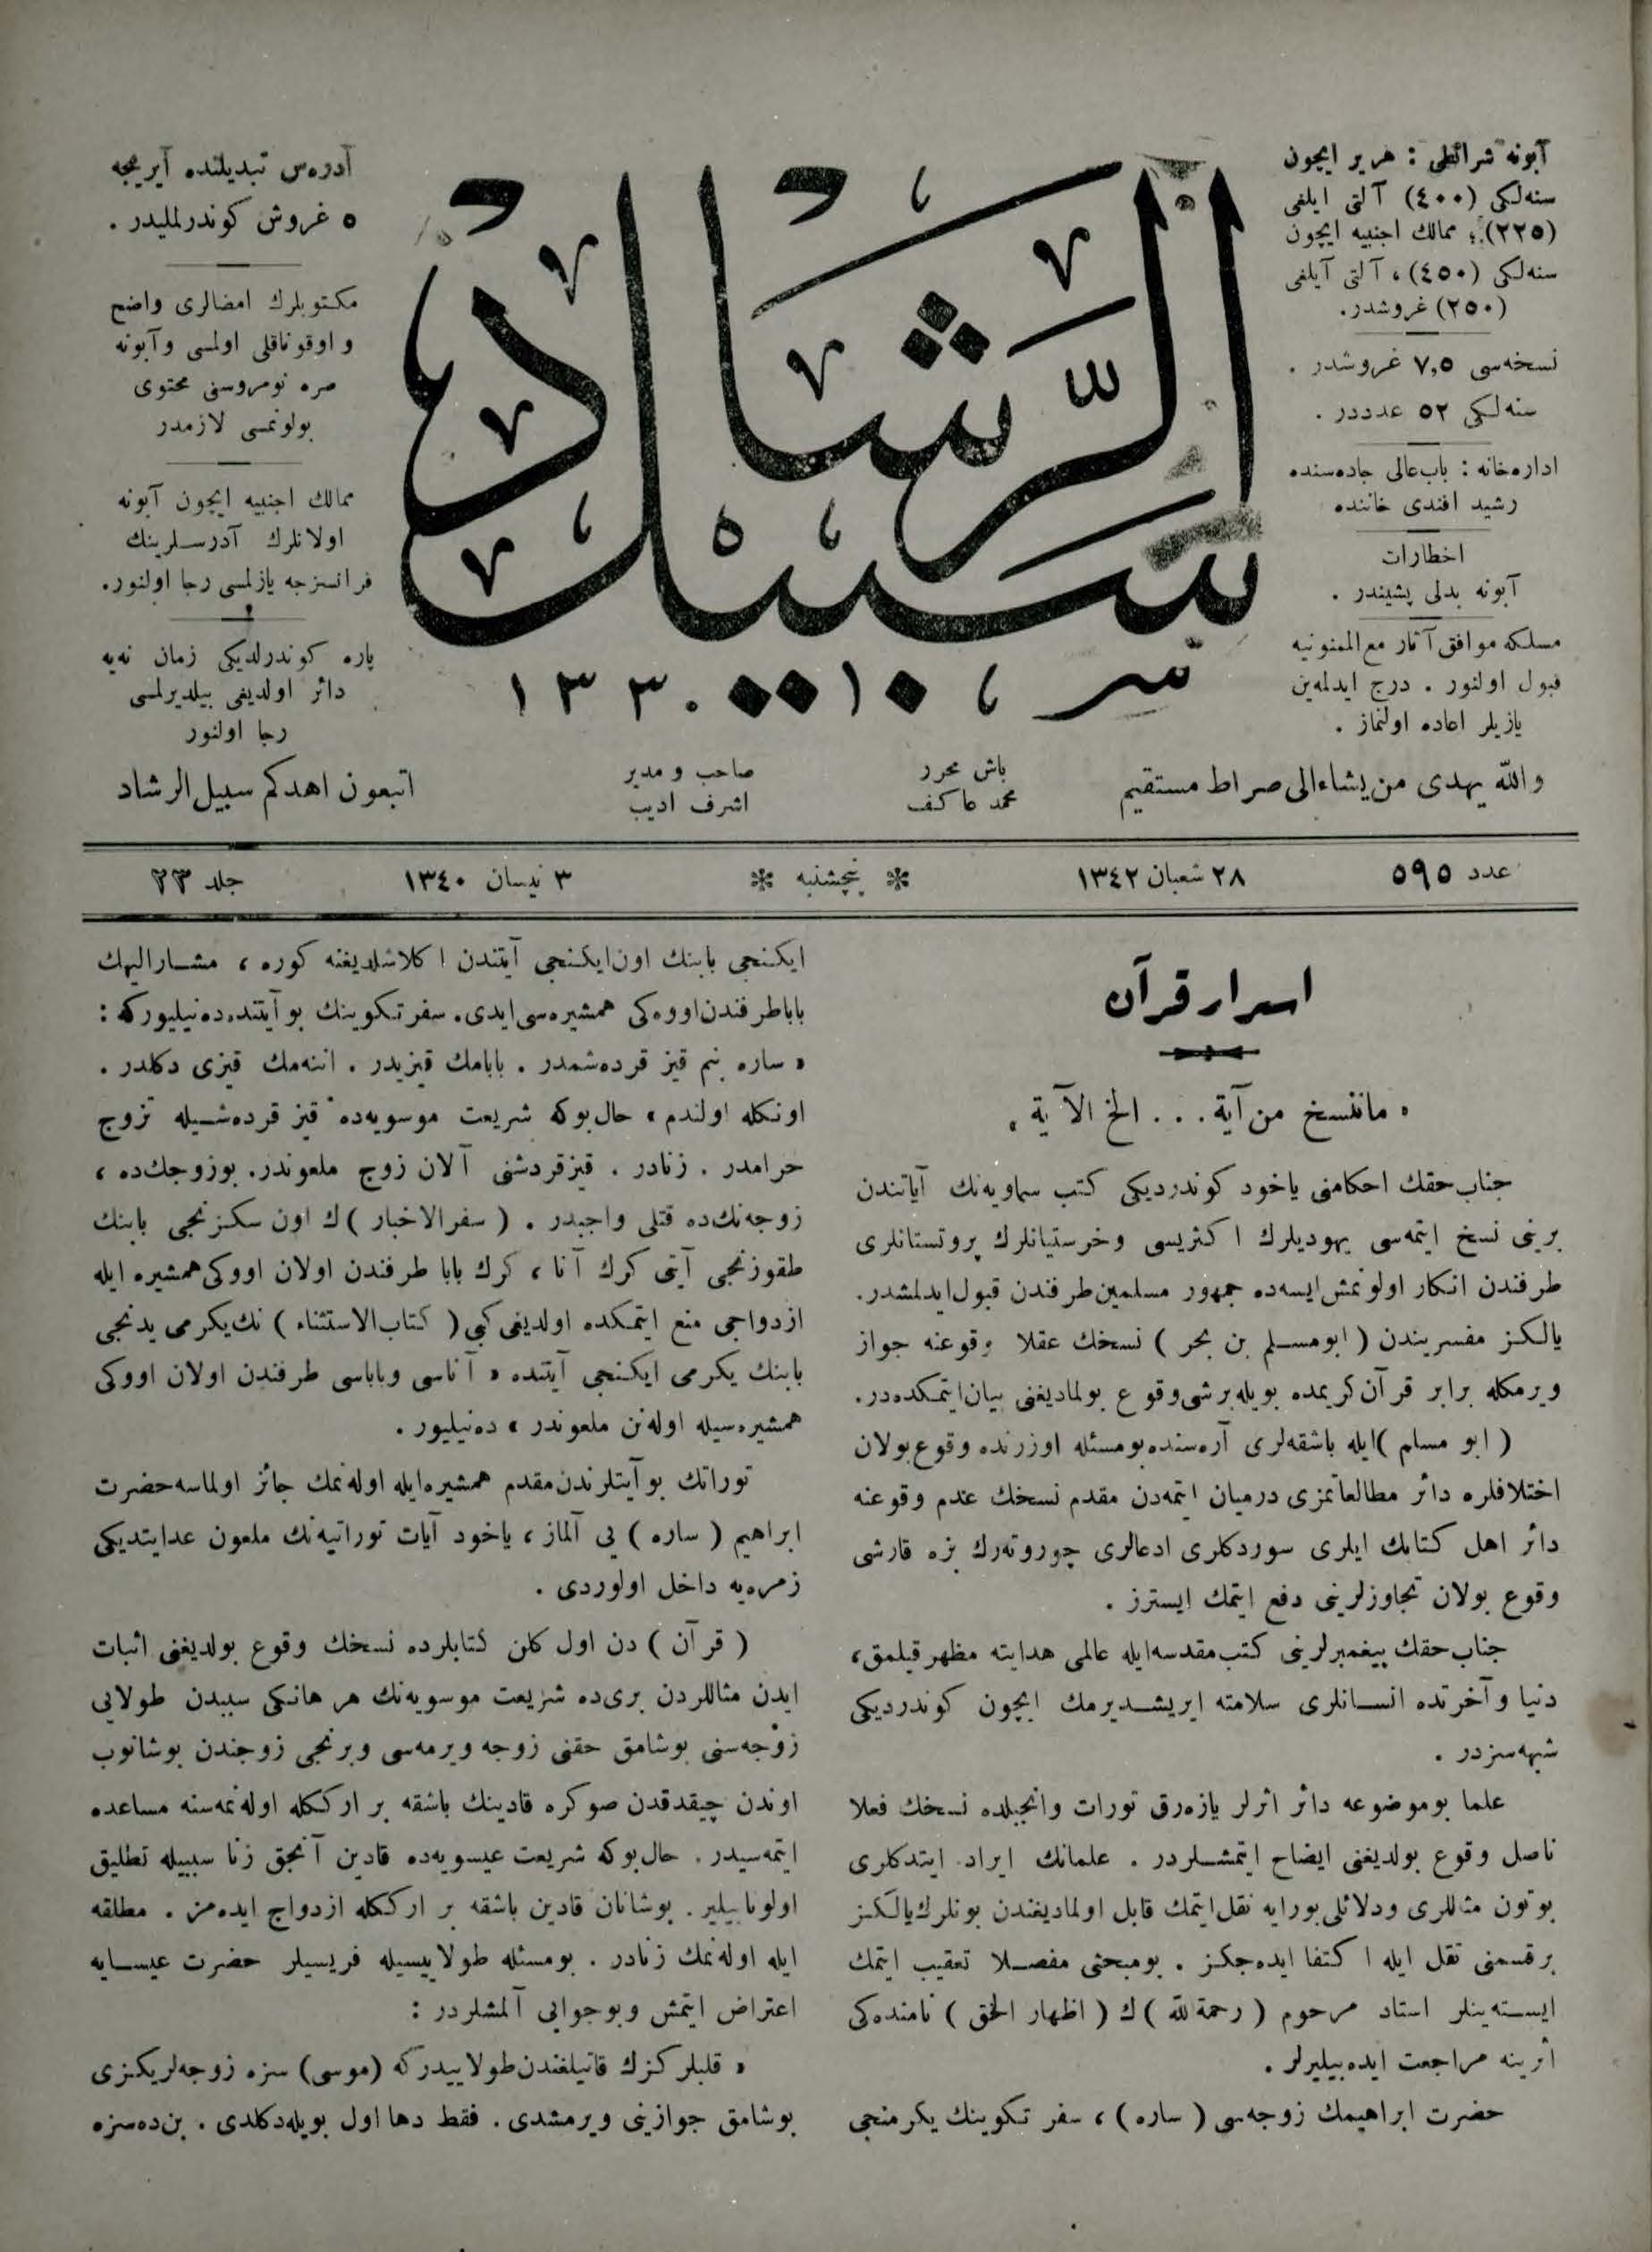 آبونه شرائطی : هر یر ایچون
سنه‌لکی (٤٠٠) آلتی ایلغی
(٢٢٥)؛ ممالك اجنبیه ایچون
سنه‌لکی (٤٥٠) ، آلتی آیلغی
(٢٥٠) غروشدر.
نسخه‌سی ٧,٥ غروشدر .
سنه‌لکی ٥٢ عدددر .
اداره‌خانه : باب‌عالی جاده‌سنده
رشید افندی خاننده
اخطارات
آبونه بدلی پشیندر .
مسلکه موافق آثار مع‌الممنونیه
قبول اولنور . درج ایدلمه‌ین
یازیلر اعاده اولنماز .
سبيل الرشاد
١٣٣٠
آدره‌س تبدیلنده آیریجه
٥ غروش كوندرلملیدر .
مكتوبلرك امضالری واضح
و اوقوناقلی اولمسی وآبونه
صره نومروسنی محتوی
بولونمسی لازمدر
ممالك اجنبیه ایچون آبونه
اولانلرك آدرسلرینك
فرانسزجه یازلمسی رجا اولنور.
پاره كوندرلدیكی زمان نه‌یه
دائر اولدیغی بیلدیرلمسی
رجا اولنور
والله یهدی من یشاء الی صراط مستقیم
باش محرر
محمد عاكف
صاحب و مدیر
اشرف ادیب
اتبعون اهدكم سبیل الرشاد
عدد ٥٩٥
٢٨ شعبان ١٣٤٢
* پنچشنبه *
٣ نیسان ١٣٤٠
جلد ٢٣
اسرار قرآن
« ماننسخ من آیة . . . الخ الآیة »
جناب‌حقك احكامنی یاخود كوندردیكی كتب سماویه‌نك آیاتندن
برینی نسخ ایتمه‌سی یهودیلرك اكثریسی وخرستیانلرك پروتستانلری
طرفندن انكار اولونمش‌ایسه‌ده جمهور مسلمین‌طرفندن قبول‌ایدلمشدر.
یالكز مفسریندن ( ابومسلم بن بحر ) نسخك عقلا وقوعنه جواز
ویرمكله برابر قرآن‌كریمده بویله‌برشی‌وقوع بولمادیغنی بیان‌ایتمكده‌در.
( ابو مسلم )ایله باشقه‌لری آره‌سنده‌بومسئله اوزرنده وقوع‌بولان
اختلافلره دائر مطالعاتمزی درمیان ایتمه‌دن مقدم نسخك عدم وقوعنه
دائر اهل كتابك ایلری سوردكلری ادعالری چوروته‌رك بزه قارشی
وقوع بولان تجاوزلرینی دفع ایتمك ایسترز .
جناب‌حقك پیغمبرلرینی كتب‌مقدسه‌ایله عالمی هدایته مظهرقیلمق،
دنیا وآخرتده انسانلری سلامته ایریشدیرمك ایچون كوندردیكی
شبهه‌سزدر .
علما بوموضوعه دائر اثرلر یازه‌رق تورات وانجیلده نسخك فعلا
ناصل وقوع بولدیغنی ایضاح ایتمشلردر . علمانك ایراد ایتدكلری
بوتون مثاللری ودلائلی بورایه نقل‌ایتمك قابل اولمادیغندن بونلرك‌یالكز
برقسمنی نقل ایله اكتفا ایده‌جكز . بومبحثی مفصلا تعقیب ایتمك
ایسته‌ینلر استاد مرحوم ( رحمةالله )ك ( اظهار الحق ) نامنده‌كی
اثرینه مراجعت ایده‌بیلیرلر .
حضرت ابراهیمك زوجه‌سی ( ساره ) ، سفر تكوینك یكرمنجی
ایكنجی بابنك اون‌ایكنجی آیتندن اكلاشلدیغنه كوره ، مشارالیهك
باباطرفندن‌اووه‌كی همشیره‌سی‌ایدی. سفرتكوینك بوآیتنده‌ده‌نیلیوركه :
« ساره بنم قیز قرده‌شمدر . بابامك قیزیدر . اننه‌مك قیزی دكلدر .
اونكله اولندم » حال‌بوكه شریعت موسویه‌ده قیز قرده‌شیله تزوج
حرامدر . زنادر . قیزقردشنی آلان زوج ملعوندر. بوزوجك‌ده ،
زوجه‌نك‌ده قتلی واجبدر . ( سفرالاخبار )ك اون سكزنجی بابنك
طقوزنجی آیتی كرك آنا ، كرك بابا طرفندن اولان اووكی‌همشیره ایله
ازدواجی منع ایتمكده اولدیغی‌كبی ( كتاب‌الاستثناء ) نك‌یكرمی یدنجی
بابنك یكرمی ایكنجی آیتنده « آناسی وباباسی طرفندن اولان اووكی
همشیره‌سیله اوله‌نن ملعوندر » ده‌نیلیور .
توراتك بوآیتلرندن‌مقدم همشیره‌ایله اوله‌نمك جائز اولماسه‌حضرت
ابراهیم ( ساره ) یی آلماز ، یاخود آیات توراتیه‌نك ملعون عدایتدیكی
زمره‌یه داخل اولوردی .
( قرآن ) دن اول كلن كتابلرده نسخك وقوع بولدیغنی اثبات
ایدن مثاللردن بری‌ده شریعت موسویه‌نك هر هانكی سببدن طولایی
زوجه‌سنی بوشامق حقنی زوجه ویرمه‌سی وبرنجی زوجندن بوشانوب
اوندن چیقدقدن صوكره قادینك باشقه بر ارككله اوله‌نمه‌سنه مساعده
ایتمه‌سیدر . حال‌بوكه شریعت عیسویه‌ده قادین آنجق زنا سببیله تطلیق
اولونابیلیر . بوشانان قادین باشقه بر ارككله ازدواج ایده‌مز . مطلقه
ایله اوله‌نمك زنادر . بومسئله طولاییسیله فریسیلر حضرت عیسایه
اعتراض ایتمش وبوجوابی آلمشلردر :
« قلبلركزك قاتیلغندن‌طولاییدركه (موسی) سزه زوجه‌لریكزی
بوشامق جوازینی ویرمشدی . فقط دها اول بویله‌دكلدی . بن‌ده‌سزه